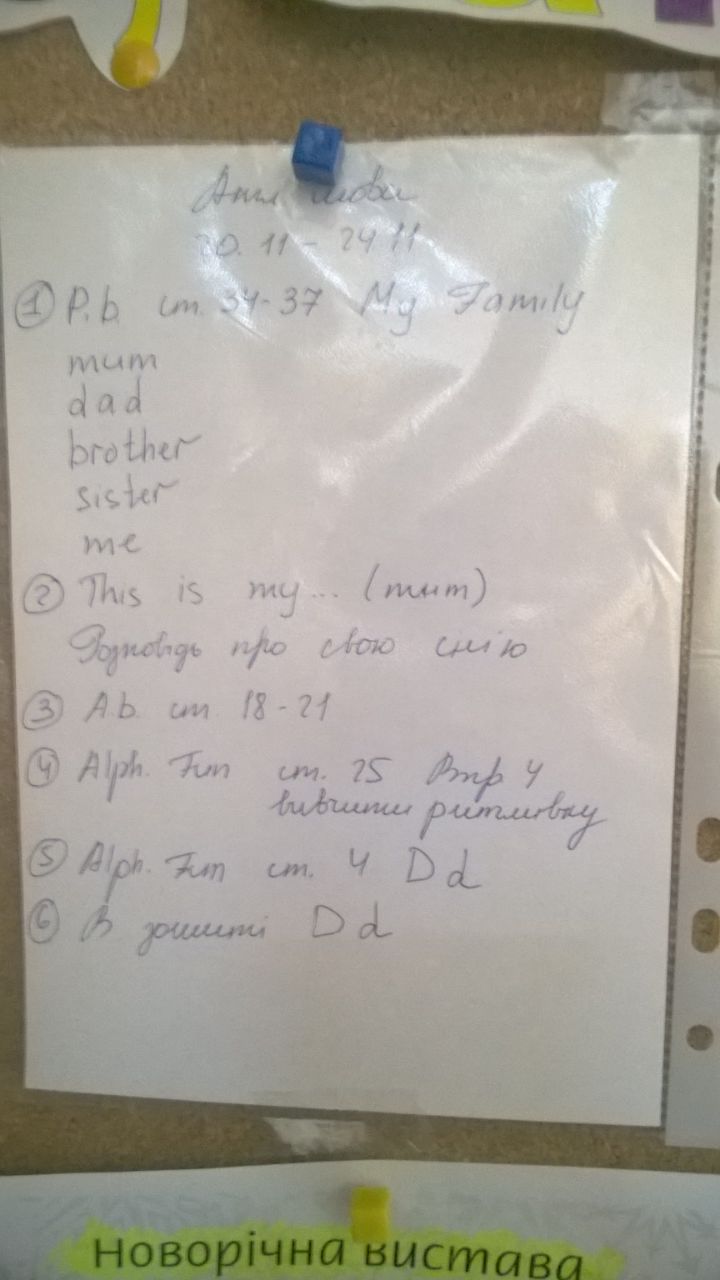 Англ мова
20.11 - 24 11
① P.b. ст. 34-37 My Family
mum
dad
brother
sister
me
② This is my... (mum)
Розповідь про свою сім'ю
③ A.b. ст 18-21
④ Alph. Fun ст. 25 Впр 4
вивчити римівку
⑤ Alph. Fun ст. 4 D d
⑥ В зошиті D d
Новорічна вистава